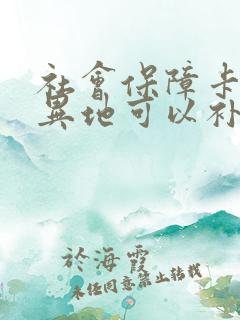 社會保障卡
異地可以补
於海霞
未经同意禁止转载